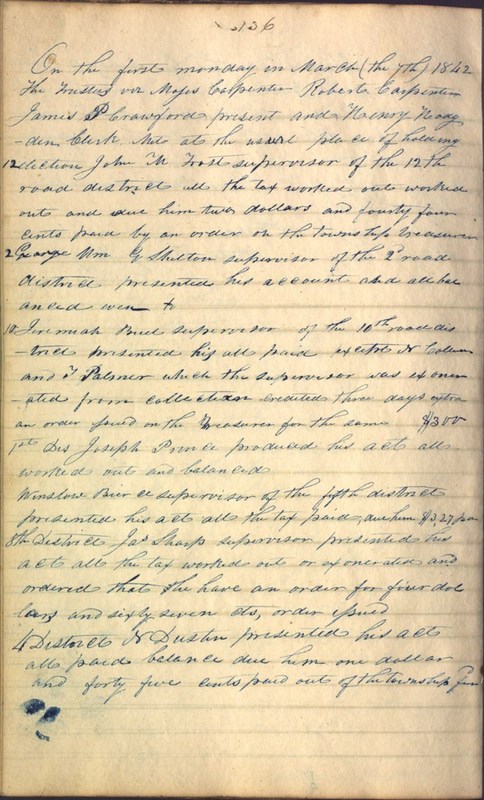 136
On the first monday in March (the 7th) 1842
The Trustees viz Moses Carpenter Robert Carpenter
James P Crawford present and Henry Hoag
-den, Clerk Met at the usual place of holding
12 election John W Frost supervisor of the 12th
road district all the tax worked out worked
out and due him two dollars and fourty four
cents paid by an order on the township treasurer
2 George Wm G Shelton supervisor of the 2 road
district presented his account and all bal
anced even to
10 Jeremiah Buel supervisor of the 10th road dis
-trict presented his all paid except N
and T Palmer which the supervisor was exoner
-ated from collection credited three days extra
an order issued on the Treasurer for the same $3 00
1st Dis Joseph Prince produced his act all
worked out and balanced
Winslow Bierce supervisor of the fifth district
presented his act all the tax paid, due him $3,27
8th District Jas Sharp supervisor presented his
act all the tax worked out or exonerated and
ordered that he have an order for four dol
lars and sixty seven cts, order issued
4 District N Dustin presented his act
all paid balance due him one dollar
and forty five cents paid out of the township